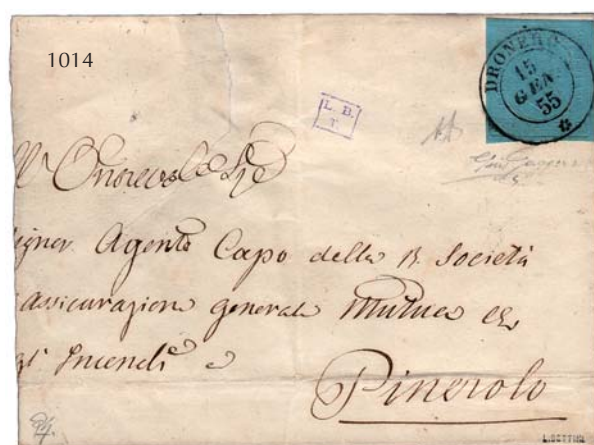 1014
DRONERO
15
GEN
55
L. B.
T.
Onorevole
Agente Capo della R. Società
assicurazione generale Mutua
Incendi
Pinerolo